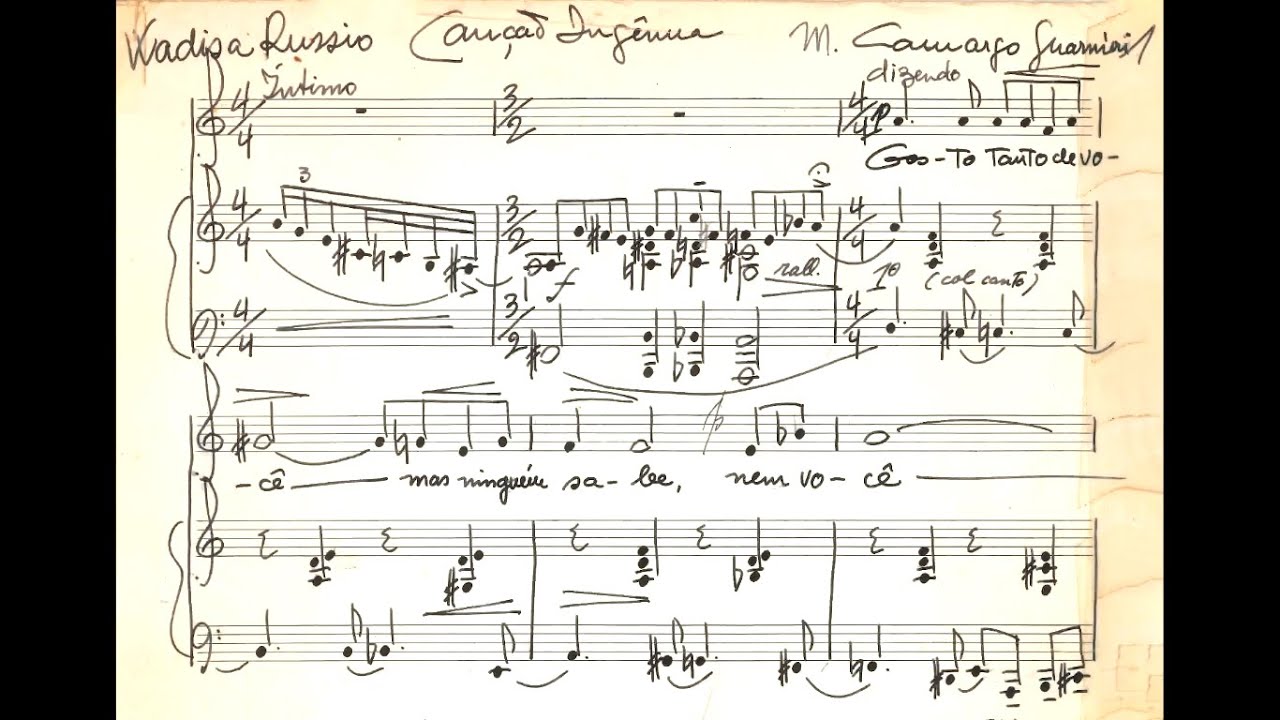 Wadisa Russio Canção Ingênua M. Camargo Guarnieri
Íntimo dizendo
4/4 3/2 4/4 p
Gos-to tanto de vo-
3
4/4 3/2 4/4
f rall. p (col canto)
4/4 3/2 4/4
p
-cê mas ninguém sa-be, nem vo-cê